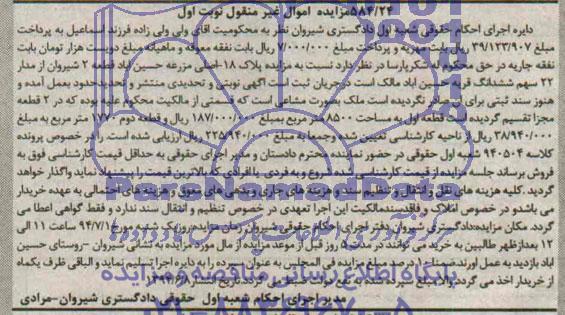 ۵۸۴/۲۴مزایده اموال غیر منقول نوبت اول
دایره اجرای احکام حقوقی شعبه اول دادگستری شیروان نظر به محکومیت اقای ولی ولی زاده فرزند اسماعیل به پرداخت
مبلغ ۳۹/۱۲۳/۹۰۷ ریال بابت مهریه و پرداخت مبلغ ۷/۰۰۰/۰۰۰ ریال بابت نفقه معوقه و ماهیانه مبلغ دویست هزار تومان بابت
نفقه جاریه در حق محکوم له شکرپارسا در نظر دارد نسبت به مزایده پلاک ۱۸-اصلی مزرعه حسین اباد قطعه ۲ شیروان از مدار
۲۲ سهم ششدانگ قریه حسین اباد مالک است درجریان ثبت است آگهی نوبتی و تحدیدی منتشر و تحدیدحدود بعمل آمده و
هنوز سند ثبتی برای آن صادر نگردیده است ملک بصورت مشاعی است که قسمتی از مالکیت محکوم علیه بوده که در ۲ قطعه
مجزا تقسیم گردیده است قطعه اول به مساحت ۸۵۰۰ متر مربع بمبلغ ۱۸۷/۰۰۰/۰۰۰ ریال و قطعه دوم ۱۷۷۰ متر مربع به مبلغ
۳۸/۹۴۰/۰۰۰ ریال از ناحیه کارشناسی تعیین شده وجمعا به مبلغ ۲۲۵/۹۴۰/۰۰۰ ریال ارزیابی شده است. در خصوص پرونده
کلاسه ۹۴۰۵۰۴ شعبه اول حقوقی در حضور نماینده محترم دادستان و مدیر اجرای حقوقی به حداقل قیمت کارشناسی فوق به
فروش برساند جلسه مزایده از قیمت کارشناسی شده شروع و به فردی یا افرادی که بالاترین قیمت را پیشنهاد نماید واگذار خواهد
گردید. کلیه هزینه های نقل و انتقال و تنظیم سند و هزینه های جاری و بدهی های معوق و هزینه های احتمالی به عهده خریدار
می باشدو در خصوص املاک و فاقدسندمالکیت این اجرا تعهدی در خصوص تنظیم و انتقال سند ندارد و فقط گواهی اعطا می
گردد. مکان مزایده:دادگستری شیروان دفتر اجرای احکام حقوقی شیروان زمان مزایده:روز یک شنبه مورخ ۹۴/۷/۱ ساعت ۱۱ الی
۱۲ بعدازظهر طالبین به خرید می توانند در مدت ۵ روز قبل از موعد مزایده از مال مورد مزایده به نشانی شیروان -روستای حسین
اباد بازدید به عمل اورند ضمنا ۱۰ درصد مبلغ مزایده فی المجلس به عنوان سپرده را به دایره اجرا تسلیم نماید و الباقی ظرف یکماه
از خریدار اخذ می گردد والا مبلغ سپرده شده به نفع دولت ضبط می گردد تاریخ انتشار
مدیر اجرای احکام شعبه اول حقوقی دادگستری شیروان-مرادی
پایگاه اطلاع رسانی مناقصه و مزایده
ParsNamadData
۰۲۱-۸۸۳۴۹۶۷۰-۵